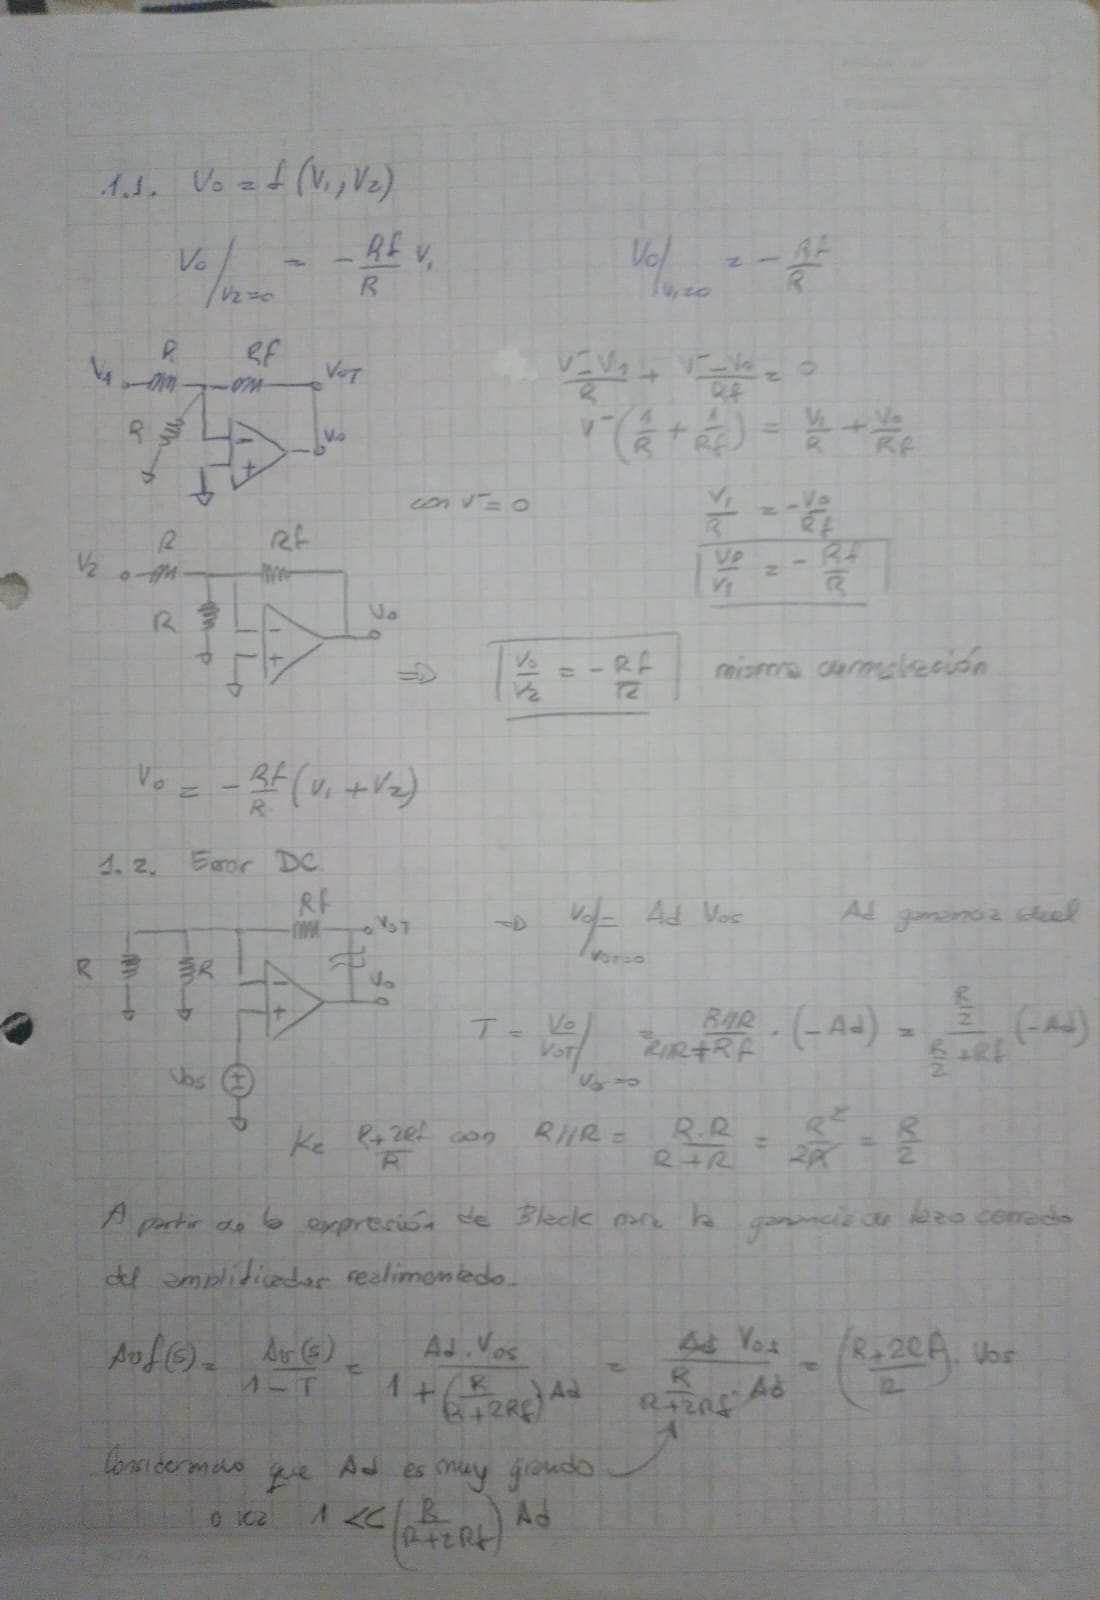 1.1. Vo = f (V1, V2)
Vo/V2=0 = - Rf/R V1
Vo/V1=0 = - Rf/R
V1 R Rf VoT
R - + Vo
(V⁻-V1)/R + (V⁻-Vo)/Rf = 0
V⁻ (1/R + 1/Rf) = V1/R + Vo/Rf
con V⁻ = 0
V1/R = - Vo/Rf
Vo/V1 = - Rf/R
V2 R Rf
R - + Vo
=> Vo/V2 = - Rf/R misma
Vo = - Rf/R (V1 + V2)
1.2. Error DC
Rf VoT
R R - + Vo
Vos
=> Vo/VoT=0 = Ad Vos Ad ganancia ideal
T = Vo/VoT /Vos=0 = R//R / (R//R+Rf) · (-Ad) = (R/2)/(R/2 + Rf) (-Ad)
K= (R+2Rf)/R con R//R = R.R/(R+R) = R²/2R = R/2
A partir de la expresión de Black para la ganancia de lazo cerrado
del amplificador realimentado.
Avf(s) = Av(s)/(1-T) = Ad.Vos/(1+(R/(R+2Rf))Ad) = Ad Vos/(R/(R+2Rf) · Ad) = ((R+2Rf)/R). Vos
Considerando que Ad es muy grande
o sea 1 << (R/(R+2Rf)) Ad